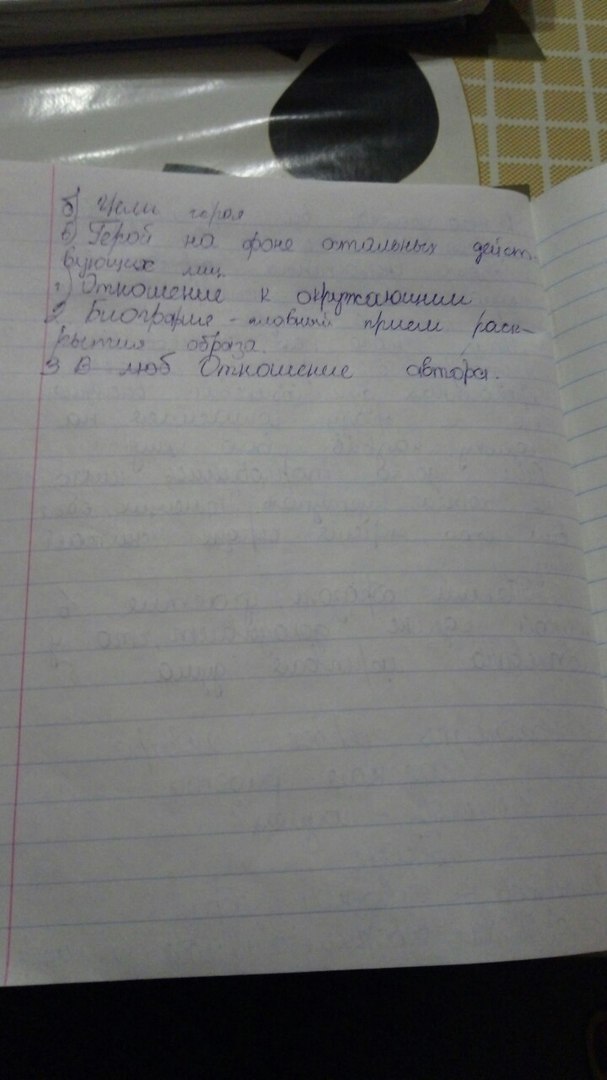 б) Цели героя
в) Герой на фоне остальных дейст
вующих лиц.
г) Отношение к окружающим
2 Биография - главный прием раск-
рытия образа.
3 В люб Отношение автора.